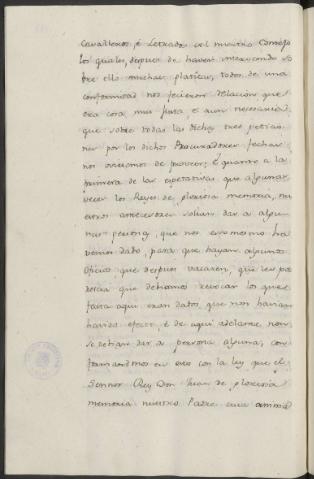 Cavalleros, é Letrados del nuestro Consejo
los quales, despues de haver intervenido so
bre ello muchas platicas, todos de una
conformidad nos fecieron relacion que
era cosa mui justa, é aun necesaria
que sobre todas las dichas tres peticio
nes por los dichos Procuradores fechas
nos oviesemos de proveer; é quanto a la
primera de las expetativas que algunas
veces los Reyes de gloriosa memoria, nu
estros antecesores solian dar a algu
nas personas, que nos eso mesmo ha
vemos dado, para que hayan algunos
Oficios que despues vacaren, que les pa
descia que debiamos revocar los que
fasta aqui eran dados, que non havian
havido efecto, é de aqui adelante, non
se debian dar a persona alguna, con
formandonos en esto con la ley que el
Sennor Rey Don Juan de gloriosa
memoria nuestro Padre cuia anima